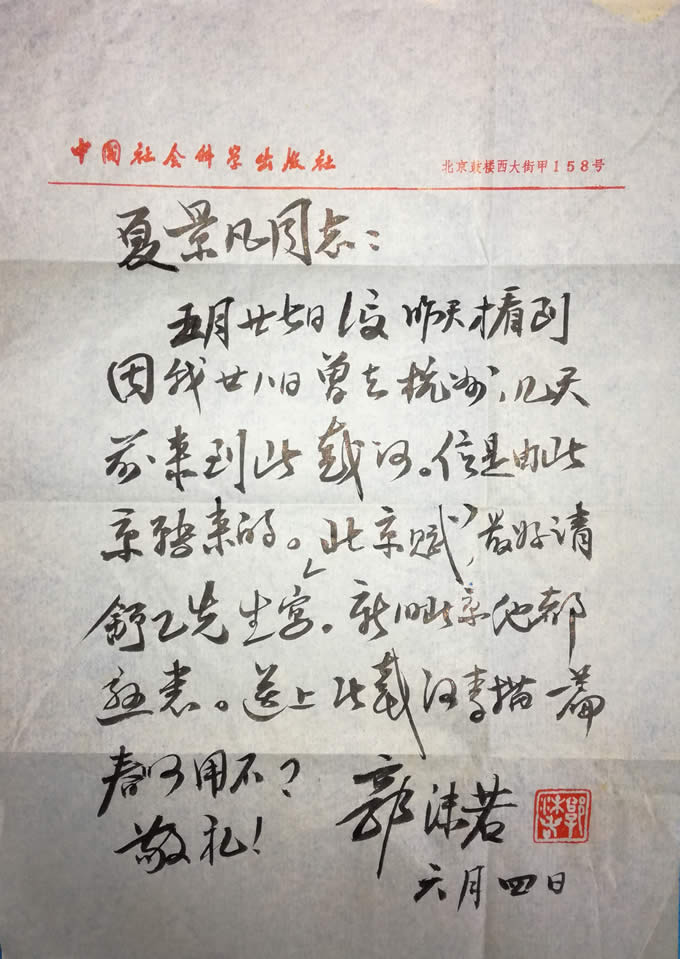 中国社会科学出版社
北京鼓楼西大街甲158号
夏景凡同志：
五月廿七日信昨天才看到
因我廿八日曾去杭州，几天
前来到北戴河。信是由北
京转来的。“北京赋”，最好请
舒乙先生写。新旧北京他都
熟悉。送上北戴河素描一篇
看可用不？
敬礼！
郭沫若
郭沫若
六月四日